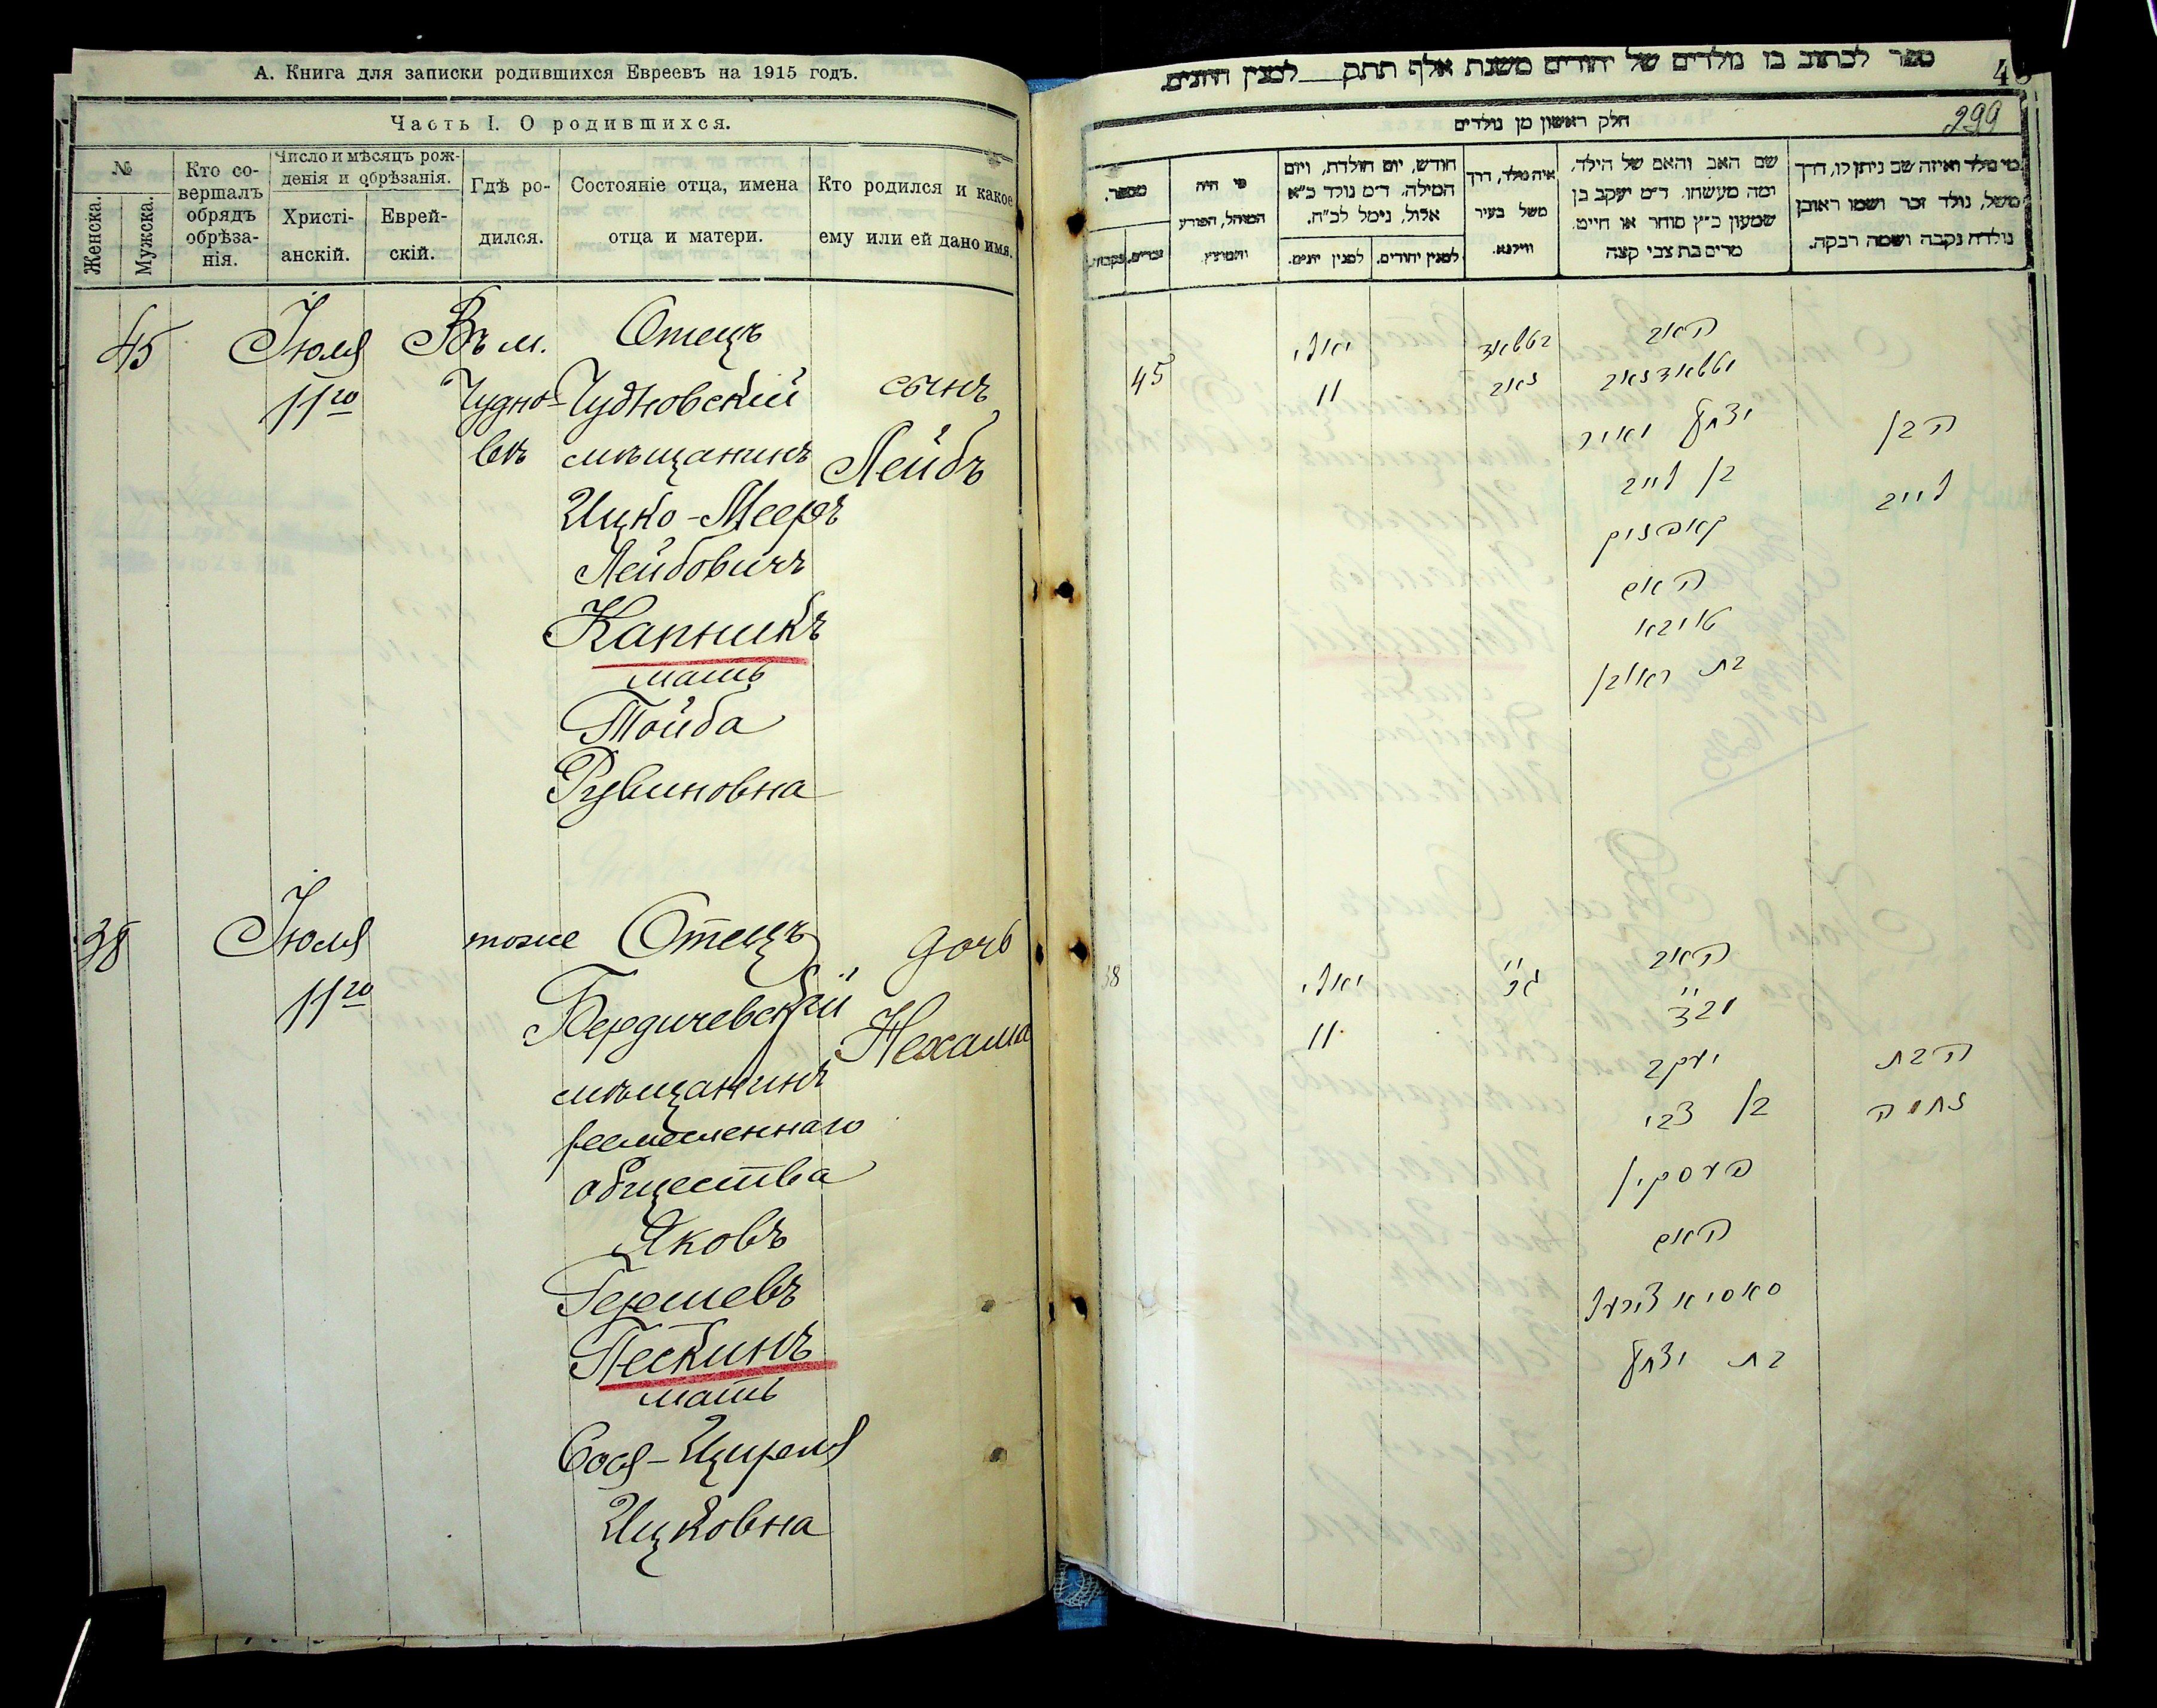 А. Книга для записки родившихся Евреевъ на 1915 годъ.
Часть I. О родившихся.
№
Женска.
Мужска.
Кто со-
вершалъ
обрядъ
обрѣза-
нія.
Число и мѣсяцъ рож-
денія и обрѣзанія.
Христі-
анскій.
Еврей-
скій.
Гдѣ ро-
дился.
Состояніе отца, имена
отца и матери.
Кто родился и какое
ему или ей дано имя.
45
Іюля
11го
Въ м.
Чудно-
вѣ
Отецъ
Чудновскій
мѣщанинъ
Ицко-Мееръ
Лейбовичъ
Капникъ
мать
Тойба
Рувиновна
сынъ
Лейбъ
38
Іюля
11го
тоже
Отецъ
Бердичевскій
мѣщанинъ
ремесленнаго
общества
Яковъ
Гершевъ
Пескинъ
мать
Сося-Цирля
Ицковна
дочь
Нехама
ספר לכתוב בו נולדים של יהודים משנת אלף תתק למנין היונים.
299
חלק ראשון מן נולדים
מי נולד ואיזה שם ניתן לו, דרך
משל, נולד זכר ושמו ראובן
נולדה נקבה ושמה רבקה.
שם האב והאם של הילד,
ומה מעשהו. ד״מ יעקב בן
שמעון כ״ץ סוחר או חייט.
מרים בת צבי קצה
איה נולד, דרך
משל בעיר
ווילנא.
חודש, יום הולדת, ויום
המילה. ד״מ נולד כ״א
אלול, נימל לכ״ח.
למנין יהודים.
למנין יונים.
מי היה
המוהל, הפורע
והמוצץ.
מספר.
זכרים.
נקבות.
45
יאלי
11
האב
יצחק מאיר
בן לייב
קאפניק
האם
טויבא
בת ראובן
הבן
לייב
38
יאלי
11
האב
יעקב
בן צבי
פעסקין
האם
סאסיא צירעל
בת יצחק
הבת
נחמה